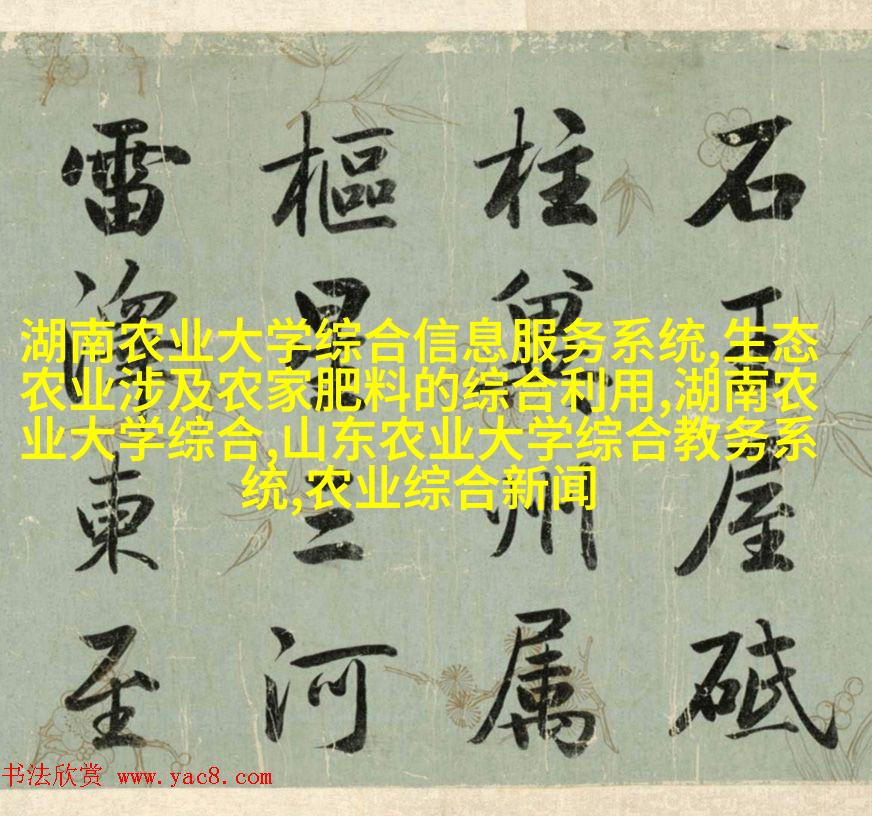 湖南农业大学综合信息服务系统,生态
农业涉及农家肥料的综合利用,湖南农
业大学综合,山东农业大学综合教务系
统,农业综合新闻
石屋砥
柱州属
樞星三河
雷東至
书法欣赏 www.yac8.com